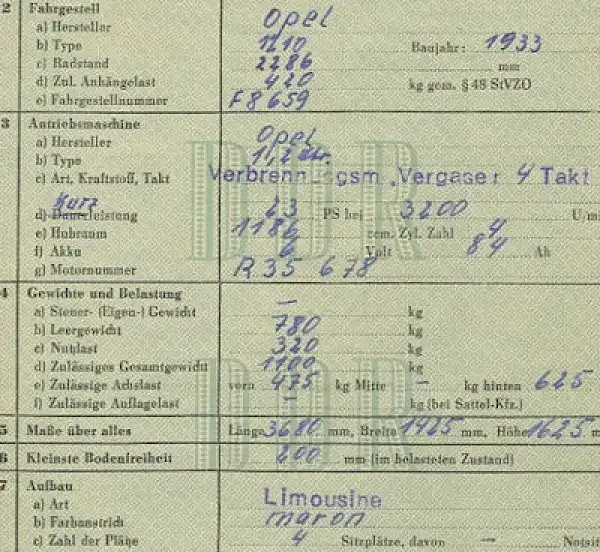 2 Fahrgestell
a) Hersteller Opel
b) Type 1210 Baujahr: 1933
c) Radstand 2286 mm
d) Zul. Anhängelast 420 kg gem. § 48 StVZO
e) Fahrgestellnummer F8659
3 Antriebsmaschine
a) Hersteller Opel
b) Type 1,2 Ltr.
c) Art, Kraftstoff, Takt Verbrennungsm. Vergaser 4 Takt
Kurz
d) Dauerleistung 23 PS bei 3200 U/mi
e) Hubraum 1186 ccm. Zyl. Zahl 4
f) Akku 6 Volt 84 Ah
g) Motornummer R35 678
DDR
4 Gewichte und Belastung
a) Steuer- (Eigen-) Gewicht – kg
b) Leergewicht 780 kg
c) Nutzlast 320 kg
d) Zulässiges Gesamtgewicht 1100 kg
e) Zulässige Achslast vorn 475 kg Mitte – kg hinten 625
f) Zulässige Auflagelast – kg (bei Sattel-Kfz.)
DDR
5 Maße über alles Länge 3680 mm, Breite 1425 mm, Höhe 1625 m
6 Kleinste Bodenfreiheit 200 mm (im belasteten Zustand)
7 Aufbau
a) Art Limousine
b) Farbanstrich maron
c) Zahl der Plätze 4 Sitzplätze, davon – Notsit